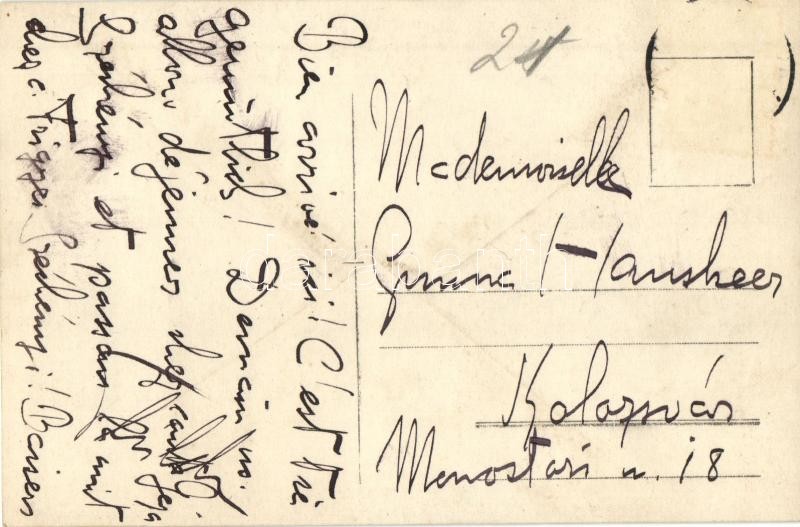 Bien arrivé ici! C'est très
gemüthlich! Demain n.
allons déjeuner chez
Széchényi et passons nuit
chez Széchényi! Baisers
24
Mademoiselle
Hansheer
Kolozsvár
Monostori u. 18